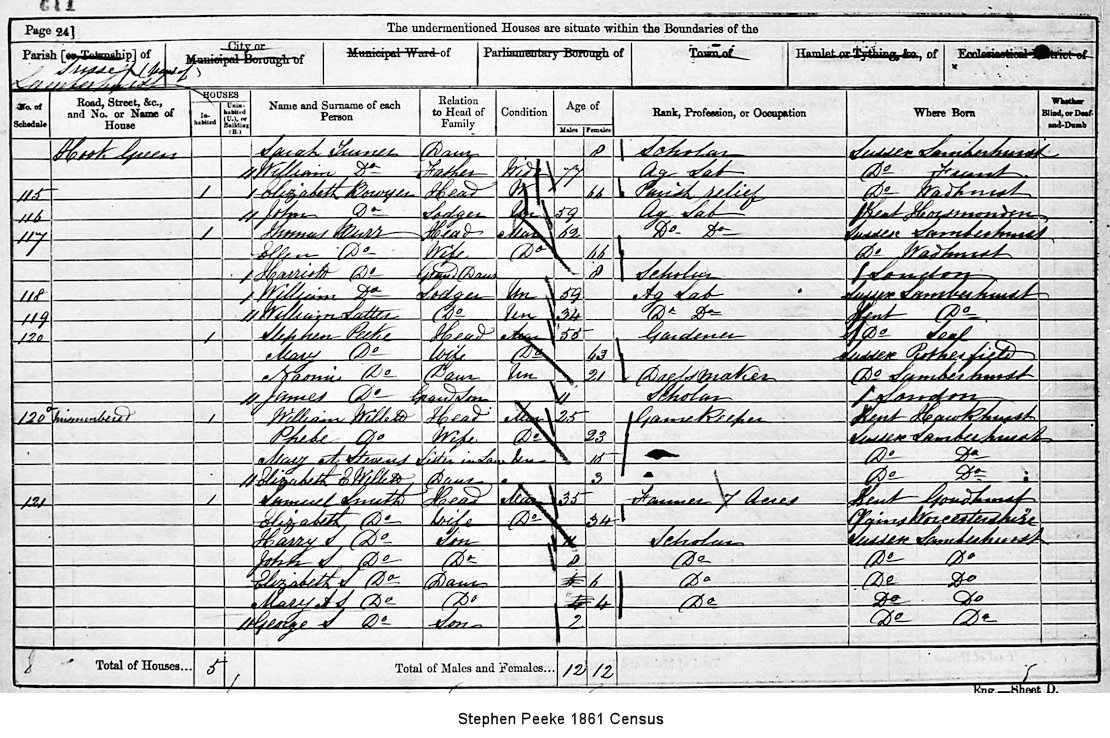 Page 24]
The undermentioned Houses are situate within the Boundaries of the
Parish [or Township] of
City or Municipal Borough of
Municipal Ward of
Parliamentary Borough of
Town of
Hamlet or Tything, &c., of
Ecclesiastical District of
Lamberhurst
No. of Schedule
Road, Street, &c., and No. or Name of House
HOUSES
In-habited
Unin-habited (U.), or Building (B.)
Name and Surname of each Person
Relation to Head of Family
Condition
Age of
Males
Females
Rank, Profession, or Occupation
Where Born
Whether Blind, or Deaf-and-Dumb
Hook Green Sarah Daur 8 Scholar Sussex Lamberhurst
William Do Father 77 Ag Lab Do Frant
115 1 Elizabeth Head 66 Parish relief Do Wadhurst
116 John Do Lodger Un 59 Ag Lab Kent Horsmonden
117 1 Thomas Head Mar 62 Do Do Sussex Lamberhurst
Ellen Do Wife Do 66 Do Wadhurst
Harriott Do Grand Daur 8 Scholar London
118 William Do Lodger Un 59 Ag Lab Sussex Lamberhurst
119 William Do Un 34 Do Do Kent Do
120 1 Stephen Peeke Head Mar 55 Gardener Do Seal
Mary Do Wife Do 63 Sussex Rotherfield
Naomi Do Daur Un 21 Do Lamberhurst
James Do Grand Son Scholar London
120 1 William Willett Head Mar 25 Gamekeeper Kent Hawkhurst
Phebe Do Wife Do 23 Sussex Lamberhurst
Mary A Stevens Sister in Law Un 15 Do Do
Elizabeth E Willett Daur 3 Do Do
121 1 Samuel Smith Head Mar 35 Farmer 7 Acres Kent Goudhurst
Elizabeth Do Wife Do 34 Worcestershire
Harry S Do Son Scholar Sussex Lamberhurst
John S Do Do 8 Do Do Do
Elizabeth S Do Daur 6 Do Do Do
Mary A S Do Do 4 Do Do Do
George S Do Son 2 Do Do
8 Total of Houses... 5 Total of Males and Females... 12 12
Eng.—Sheet D.
Stephen Peeke 1861 Census